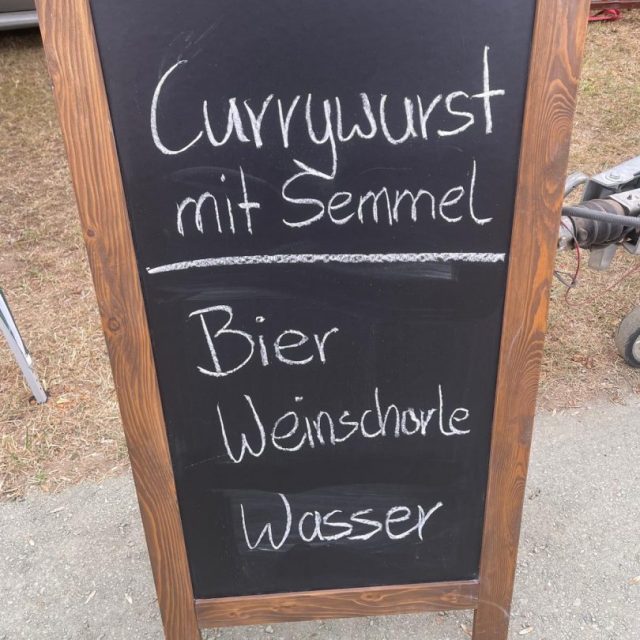 Currywurst
mit Semmel
Bier
Weinschorle
Wasser